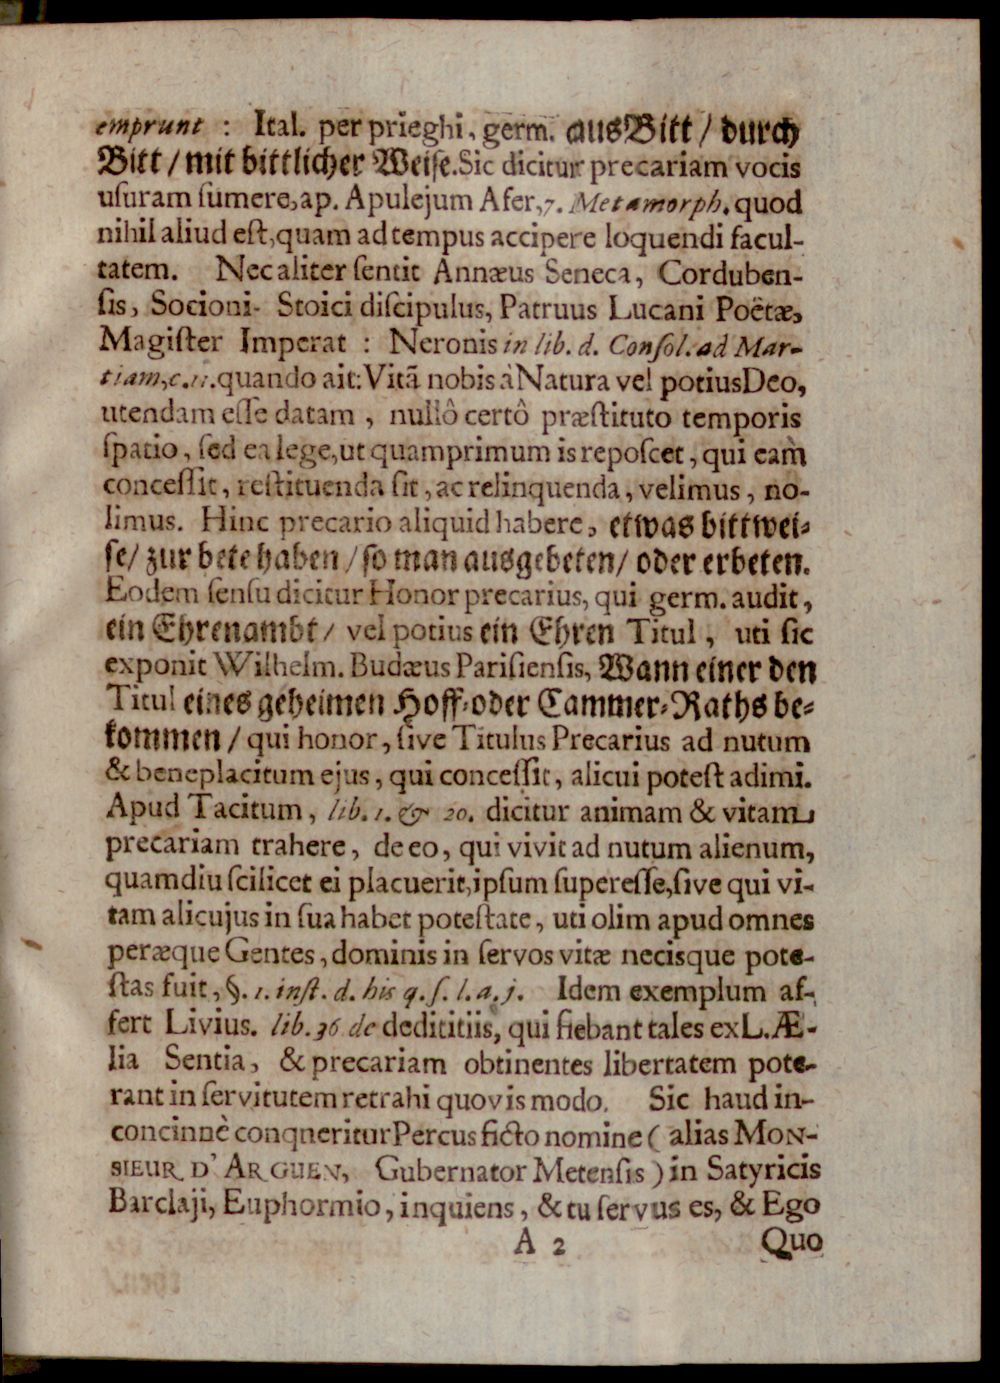 emprunt : Ital. per prieghi, germ. aus Bitt / durch
Bitt / mit bittlicher Weise. Sic dicitur precariam vocis
usuram sumere, ap. Apulejum Afer, 7. Metamorph. quod
nihil aliud est, quam ad tempus accipere loquendi facul-
tatem. Nec aliter sentit Annæus Seneca, Corduben-
sis, Socioni- Stoici discipulus, Patruus Lucani Poëtæ,
Magister Imperat : Neronis in lib. d. Consol. ad Mar-
tiam, c. 11. quando ait: Vitã nobis à Natura vel potius Deo,
utendam esse datam, nullô certô præstituto temporis
spatio, sed ea lege, ut quamprimum is reposcet, qui eam
concessit, restituenda sit, ac relinquenda, velimus, no-
limus. Hinc precario aliquid habere, etwas bittwei-
se / zur bete haben / so man ausgebeten / oder erbeten.
Eodem sensu dicitur Honor precarius, qui germ. audit,
ein Ehrenambt / vel potius ein Ehren Titul, uti sic
exponit Wilhelm. Budæus Parisiensis, Wann einer den
Titul eines geheimen Hoff-oder Cammer-Raths be-
kommen / qui honor, sive Titulus Precarius ad nutum
& beneplacitum ejus, qui concessit, alicui potest adimi.
Apud Tacitum, lib. 1. & 20. dicitur animam & vitam
precariam trahere, de eo, qui vivit ad nutum alienum,
quamdiu scilicet ei placuerit, ipsum superesse, sive qui vi-
tam alicujus in sua habet potestate, uti olim apud omnes
peræque Gentes, dominis in servos vitæ necisque pote-
stas fuit, §. 1. inst. d. his q. s. l. a. j. Idem exemplum af-
fert Livius. lib. 36 de dedititiis, qui fiebant tales ex L. Æ-
lia Sentia, & precariam obtinentes libertatem pote-
rant in servitutem retrahi quovis modo. Sic haud in-
concinnè conqneritur Percus ficto nomine ( alias Mon-
sieur d' Arguen, Gubernator Metensis ) in Satyricis
Barclaji, Euphormio, inquiens, & tu servus es, & Ego
A 2 Quo